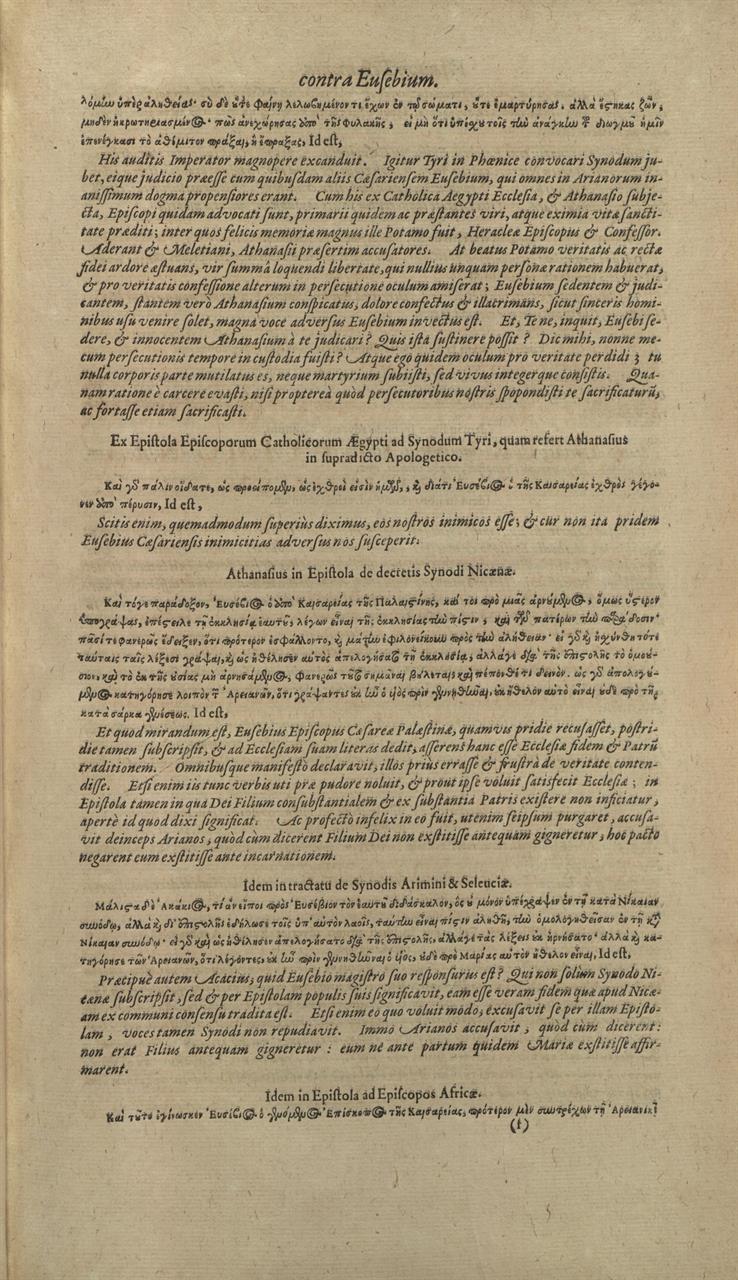 contra Euſebium.
λόμίω ὑπὲρ ἀληθείας· σὺ δὲ οὔτε φαίνῃ λελωβημένον τι ἔχων ἐν τῷ σώματι, οὔτε ἐμαρτύρησας, ἀλλὰ ἕςηκας ζῶν,
μηδὲν ἠκρωτηριασμένος· πῶς ἀνεχώρησας ἀπὸ τῆς φυλακῆς, εἰ μὴ ὅτι ὑπέχου τοῖς τὴν ἀνάγκην τοῦ διωγμοῦ ἡμῖν
ἐπενέγκασι τὸ ἀθέμιτον πράξαι, ἢ ἔπραξας, Id eſt,
His auditis Imperator magnopere excanduit. Igitur Tyri in Phœnice convocari Synodum ju-
bet, eique judicio præeſſe cum quibuſdam aliis Cæſarienſem Euſebium, qui omnes in Arianorum in-
aniſſimum dogma propenſiores erant. Cum his ex Catholica Aegypti Eccleſia, & Athanaſio ſubje-
cta, Epiſcopi quidam advocati ſunt, primarii quidem ac præſtantes viri, atque eximia vitæ ſancti-
tate præditi; inter quos felicis memoriæ magnus ille Potamo fuit, Heracleæ Epiſcopus & Confeſſor.
Aderant & Meletiani, Athanaſii præſertim accuſatores. At beatus Potamo veritatis ac rectæ
fidei ardore æſtuans, vir ſummâ loquendi libertate, qui nullius unquam perſonæ rationem habuerat,
& pro veritatis confeſſione alterum in perſecutione oculum amiſerat; Euſebium ſedentem & judi-
cantem, ſtantem verò Athanaſium conſpicatus, dolore confectus & illacrimans, ſicut ſinceris homi-
nibus uſu venire ſolet, magna voce adverſus Euſebium invectus eſt. Et, Tene, inquit, Euſebi ſe-
dere, & innocentem Athanaſium à te judicari? Quis iſta ſuſtinere poſſit? Dic mihi, nonne me-
cum perſecutionis tempore in cuſtodia fuiſti? Atque ego quidem oculum pro veritate perdidi; tu
nulla corporis parte mutilatus es, neque martyrium ſubiiſti, ſed vivus integerque conſiſtis. Qua-
nam ratione è carcere evaſti, niſi propterea quòd perſecutoribus noſtris ſpopondiſti te ſacrificaturũ,
ac fortaſſe etiam ſacrificaſti.
Ex Epiſtola Epiſcoporum Catholicorum Ægypti ad Synodum Tyri, quam refert Athanaſius
in ſupradicto Apologetico.
Καὶ γὰρ πάλιν οἴδατε, ὡς προείπομεν, ὡς ἐχθροὶ εἰσὶν ἡμῶν, καὶ διατί Εὐσέβιος ὁ τῆς Καισαρείας ἐχθρὸς γέγο-
νεν ἀπὸ πέρυσιν, Id eſt,
Scitis enim, quemadmodum ſuperiùs diximus, eos noſtros inimicos eſſe; & cùr non ita pridem
Euſebius Cæſarienſis inimicitias adverſus nos ſuſceperit.
Athanaſius in Epiſtola de decretis Synodi Nicænæ.
Καὶ τόγε παράδοξον, Εὐσέβιος ὁ ἀπὸ Καισαρείας τῆς Παλαιςίνης, καί τοι πρὸ μιᾶς ἀρνούμενος, ὅμως ὕςερον
ὑπογράψας, ἐπέςειλε τῇ ἐκκλησίᾳ ἑαυτοῦ, λέγων εἶναι τῆς ἐκκλησίας τὴν πίςιν, καὶ τῶν πατέρων τὴν παράδοσιν·
πᾶσί τε φανερῶς ἔδειξεν, ὅτι πρότερον ἐσφάλλοντο, καὶ μάτην ἐφιλονείκουν πρὸς τὴν ἀλήθειαν· εἰ γὰρ καὶ ᾐσχύνθη τότε
ταύταις ταῖς λέξεσι γράψαι, καὶ ὡς ἠθέλησεν αὐτὸς ἀπελογήσατο τῇ ἐκκλησίᾳ, ἀλλά γε διὰ τῆς ἐπιςολῆς τὸ ὁμοού-
σιον, καὶ τὸ ἐκ τῆς οὐσίας μὴ ἀρνησάμενος, φανερῶς τοῦτο σημᾶναι βούλεται, καὶ πέπονθέ τι δεινόν. ὡς γὰρ ἀπολογού-
μενος κατηγόρησε λοιπὸν τῶν Ἀρειανῶν, ὅτι γράψαντες οὐκ ἦν ὁ υἱὸς πρὶν γεννηθῆναι, οὐκ ἤθελον αὐτὸν εἶναι οὐδὲ πρὸ τῆς
κατὰ σάρκα γενέσεως. Id eſt,
Et quod mirandum eſt, Euſebius Epiſcopus Cæſareæ Palæſtinæ, quamvis pridie recuſaſſet, poſtri-
die tamen ſubſcripſit, & ad Eccleſiam ſuam literas dedit, aſſerens hanc eſſe Eccleſiæ fidem & Patrũ
traditionem. Omnibuſque manifeſtò declaravit, illos priùs erraſſe & fruſtrà de veritate conten-
diſſe. Etſi enim iis tunc verbis uti præ pudore noluit, & prout ipſe voluit ſatisfecit Eccleſiæ; in
Epiſtola tamen in qua Dei Filium conſubſtantialem & ex ſubſtantia Patris exiſtere non inficiatur,
apertè id quod dixi ſignificat. Ac profectò infelix in eo fuit, ut enim ſeipſum purgaret, accuſa-
vit deinceps Arianos, quòd cùm dicerent Filium Dei non exſtitiſſe antequam gigneretur, hoc pacto
negarent eum exſtitiſſe ante incarnationem.
Idem in tractatu de Synodis Arimini & Seleuciæ.
Μάλιςα δὲ Ἀκάκιος, τί ἂν εἴποι πρὸς Εὐσέβιον τὸν ἑαυτοῦ διδάσκαλον, ὃς οὐ μόνον ὑπέγραψεν ἐν τῇ κατὰ Νίκαιαν
συνόδῳ, ἀλλὰ καὶ δι' ἐπιςολῆς ἐδήλωσε τοῖς ὑπ' αὐτὸν λαοῖς, ταύτην εἶναι πίςιν ἀληθῆ, τὴν ὁμολογηθεῖσαν ἐν τῇ κατὰ
Νίκαιαν συνόδῳ· εἰ γὰρ καὶ ὡς ἠθέλησεν ἀπελογήσατο διὰ τῆς ἐπιςολῆς, ἀλλά γε τὰς λέξεις οὐκ ἠρνήσατο· ἀλλὰ καὶ κα-
τηγόρησε τῶν Ἀρειανῶν, ὅτι λέγοντες, οὐκ ἦν πρὶν γεννηθῆναι ὁ υἱὸς, οὐδὲ πρὸ Μαρίας αὐτὸν ἤθελον εἶναι, Id eſt,
Præcipuè autem Acacius, quid Euſebio magiſtro ſuo reſponſurus eſt? Qui non ſolùm Synodo Ni-
cænæ ſubſcripſit, ſed & per Epiſtolam populis ſuis ſignificavit, eam eſſe veram fidem quæ apud Nicæ-
am ex communi conſenſu tradita eſt. Etſi enim eo quo voluit modo, excuſavit ſe per illam Epiſto-
lam, voces tamen Synodi non repudiavit. Immò Arianos accuſavit, quòd cùm dicerent:
non erat Filius antequam gigneretur: eum ne ante partum quidem Mariæ exſtitiſſe affir-
marent.
Idem in Epiſtola ad Epiſcopos Africæ.
Καὶ τοῦτο ἐγίνωσκεν Εὐσέβιος ὁ γενόμενος Ἐπίσκοπος τῆς Καισαρείας, πρότερον μὲν συντρέχων τῇ Ἀρειανικῇ
(f)